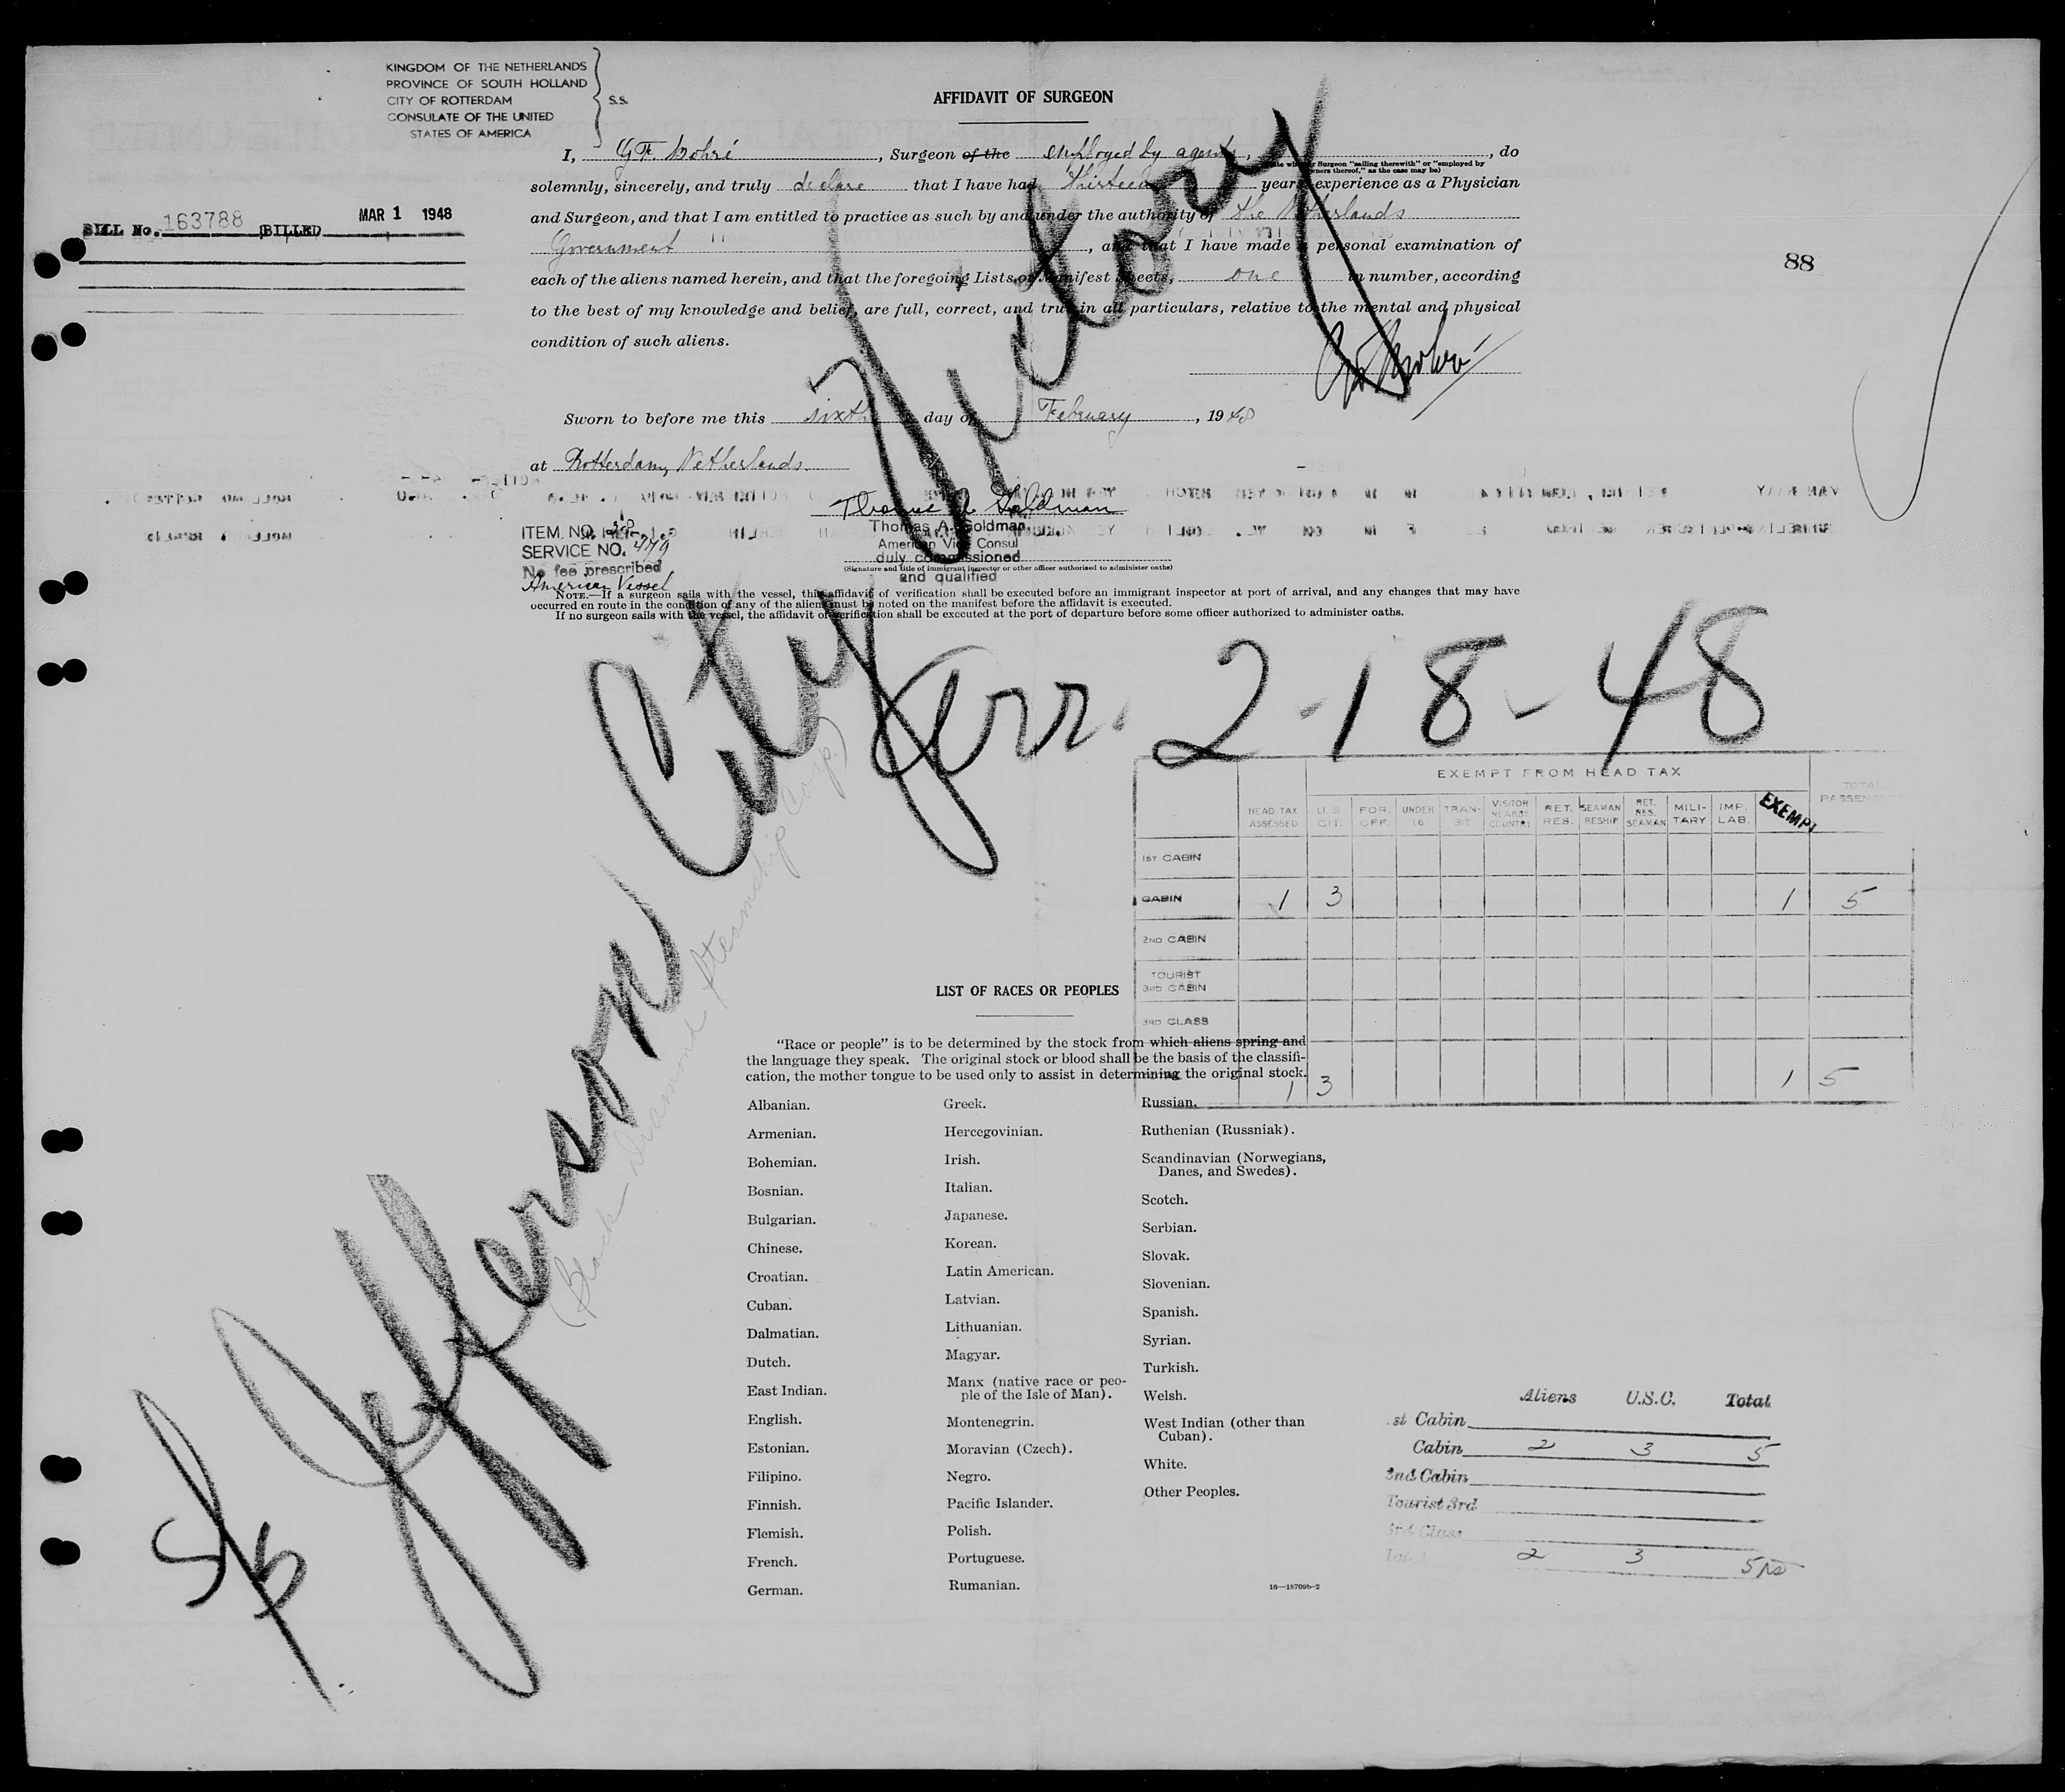 KINGDOM OF THE NETHERLANDS
PROVINCE OF SOUTH HOLLAND
CITY OF ROTTERDAM
CONSULATE OF THE UNITED
STATES OF AMERICA
S.S.
AFFIDAVIT OF SURGEON
I, G.F. , Surgeon of the employed by agents, , do
Surgeon "sailing therewith" or "employed by
owners thereof," as the case may be)
solemnly, sincerely, and truly declare that I have had thirteen years experience as a Physician
and Surgeon, and that I am entitled to practice as such by and under the authority of the Netherlands
Government , and that I have made a personal examination of
each of the aliens named herein, and that the foregoing Lists or Manifest Sheets, one in number, according
to the best of my knowledge and belief, are full, correct, and true in all particulars, relative to the mental and physical
condition of such aliens.
BILL No. 163788 BILLED MAR 1 1948
88
Sworn to before me this sixth day of February, 1948
at Rotterdam, Netherlands
Thomas A. Goldman
Thomas A. Goldman
American Vice Consul
duly commissioned
(Signature and title of immigrant inspector or other officer authorized to administer oaths)
and qualified
ITEM NO. 38
SERVICE NO. 479
No fee prescribed
American Vessel
NOTE.—If a surgeon sails with the vessel, this affidavit of verification shall be executed before an immigrant inspector at port of arrival, and any changes that may have
occurred en route in the condition of any of the aliens must be noted on the manifest before the affidavit is executed.
If no surgeon sails with the vessel, the affidavit of verification shall be executed at the port of departure before some officer authorized to administer oaths.
S/S Jefferson City Victory
(Black Diamond Steamship Corp.)
Arr. 2-18-48
EXEMPT FROM HEAD TAX
HEAD TAX ASSESSED U.S. CIT. FOR. OFF. UNDER 16 TRANSIT VISITOR NEARBY COUNTRY RET. RES. SEAMAN RESHIP RET. RES. SEAMAN MILITARY IMP. LAB. EXEMPT TOTAL PASSENGERS
1ST CABIN
CABIN 1 3 1 5
2ND CABIN
TOURIST
3RD CABIN
3RD CLASS
1 3 1 5
LIST OF RACES OR PEOPLES
"Race or people" is to be determined by the stock from which aliens spring and
the language they speak. The original stock or blood shall be the basis of the classifi-
cation, the mother tongue to be used only to assist in determining the original stock.
Albanian.
Armenian.
Bohemian.
Bosnian.
Bulgarian.
Chinese.
Croatian.
Cuban.
Dalmatian.
Dutch.
East Indian.
English.
Estonian.
Filipino.
Finnish.
Flemish.
French.
German.
Greek.
Hercegovinian.
Irish.
Italian.
Japanese.
Korean.
Latin American.
Latvian.
Lithuanian.
Magyar.
Manx (native race or peo-
ple of the Isle of Man).
Montenegrin.
Moravian (Czech).
Negro.
Pacific Islander.
Polish.
Portuguese.
Rumanian.
Russian.
Ruthenian (Russniak).
Scandinavian (Norwegians,
Danes, and Swedes).
Scotch.
Serbian.
Slovak.
Slovenian.
Spanish.
Syrian.
Turkish.
Welsh.
West Indian (other than
Cuban).
White.
Other Peoples.
16—18709b-2
Aliens U.S.C. Total
st Cabin
Cabin 2 3 5
2nd Cabin
Tourist 3rd
3rd Class
Total 2 3 5